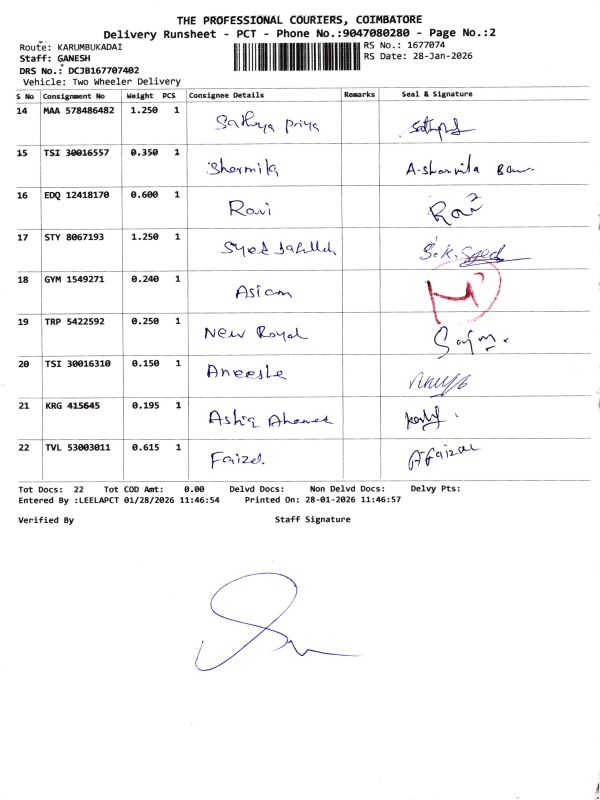 THE PROFESSIONAL COURIERS, COIMBATORE
Delivery Runsheet - PCT - Phone No.:9047080280 - Page No.:2
Route: KARUMBUKADAI
RS No.: 1677074
Staff: GANESH
RS Date: 28-Jan-2026
DRS No.: DCJB167707402
Vehicle: Two Wheeler Delivery
S No Consignment No Weight PCS Consignee Details Remarks Seal & Signature
14 MAA 578486482 1.250 1 Sathya Priya
15 TSI 30016557 0.350 1 Sharmila A. Sharmila Banu
16 EDQ 12418170 0.600 1 Ravi Ravi
17 STY 8067193 1.250 1 Syed S.K. Syed
18 GYM 1549271 0.240 1 Asiam
19 TRP 5422592 0.250 1 New Royal
20 TSI 30016310 0.150 1
21 KRG 415645 0.195 1 Ashiq Ahamed
22 TVL 53003011 0.615 1 Faizel A Faizal
Tot Docs: 22 Tot COD Amt: 0.00 Delvd Docs: Non Delvd Docs: Delvy Pts:
Entered By :LEELAPCT 01/28/2026 11:46:54 Printed On: 28-01-2026 11:46:57
Verified By Staff Signature